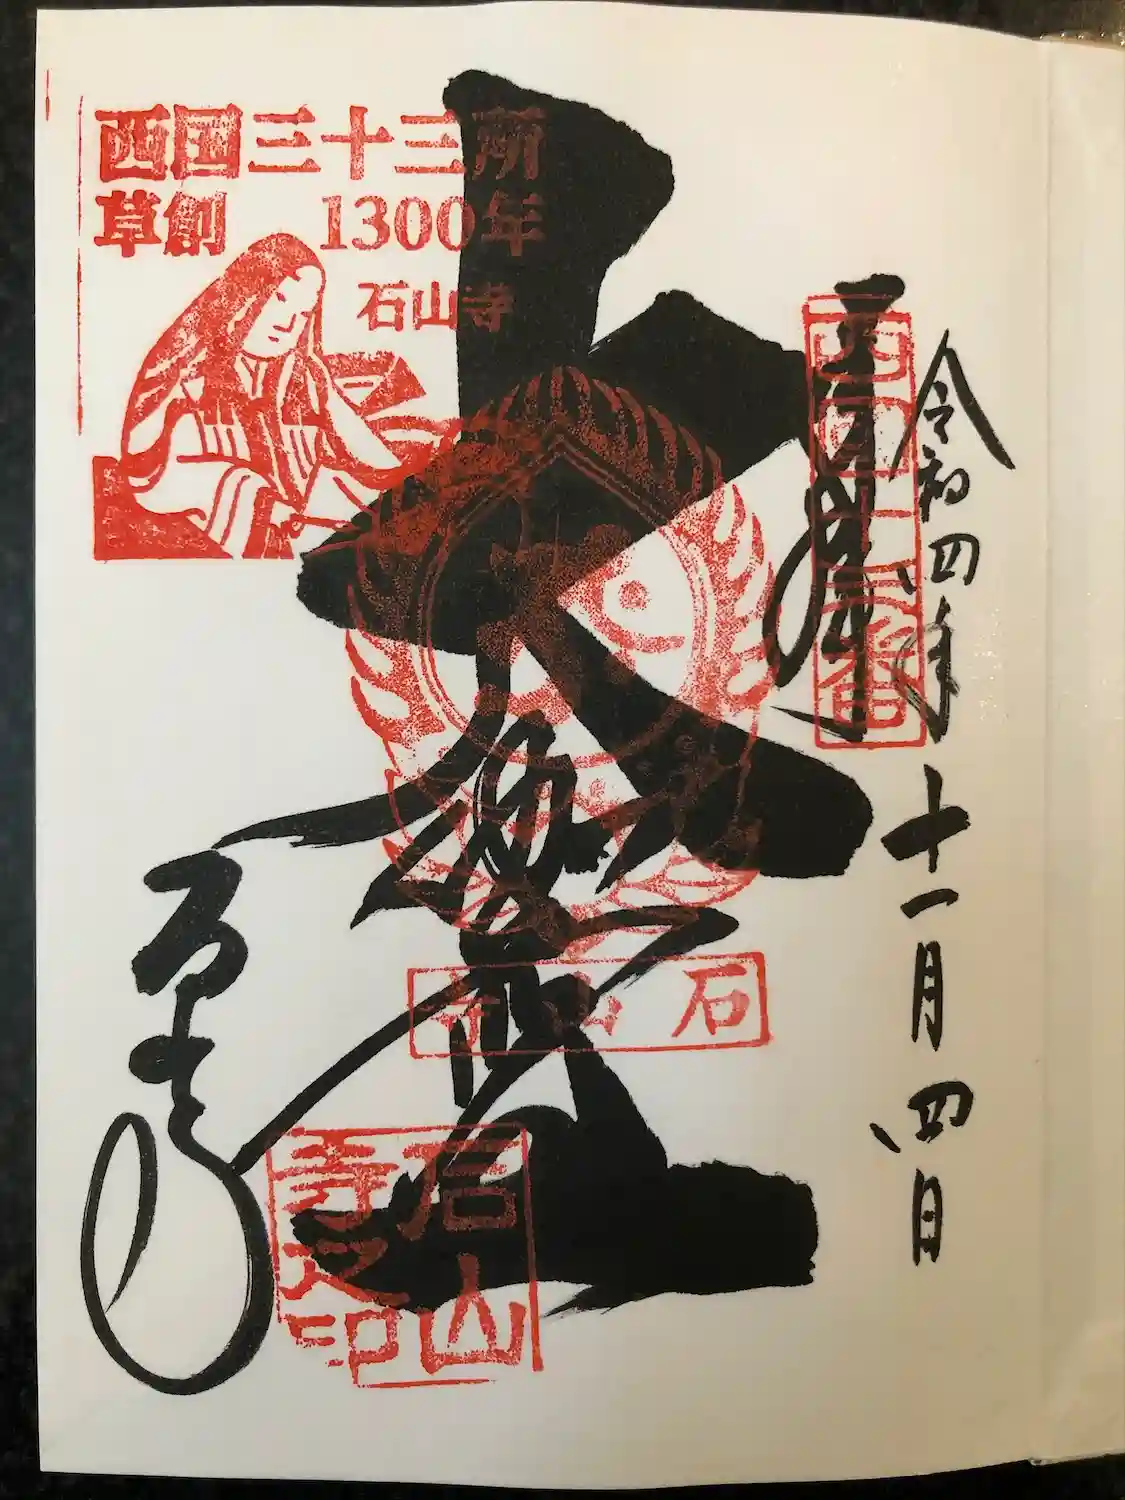 令和四年十一月四日
奉拝
西国十三番
大伽藍
石山寺
西国三十三所
草創 1300年
石山寺
石山寺
石山寺之印